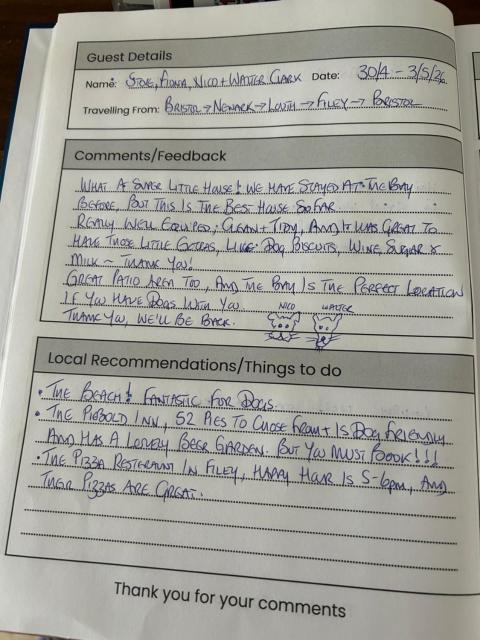 Guest Details
Name: Steve, Fiona, Nico + Walter Clark Date: 30/4 - 3/5/26
Travelling From: Bristol → Newark → Louth → Filey → Bristol
Comments/Feedback
What A Super Little House! We Have Stayed At The Bay
Before, But This Is The Best House So Far.
Really Well Equiped, Clean + Tidy, And It Was Great To
Have Those Little Extras, Like Dog Biscuits, Wine, Sugar &
Milk ~ Thank You!
Great Patio Area Too, And The Bay Is The Perfect Location
If You Have Dogs With You
Nico Walter
Thank You, We'll Be Back.
Local Recommendations/Things to do
• The Beach! Fantastic For Dogs
• The Piebold Inn, 52 Pies To Chose From + Is Dog Friendly
And Has A Lovely Beer Garden. But You Must Book!!!
• The Pizza Resteraunt In Filey, Happy Hour Is 5-6pm, And
Their Pizzas Are Great.
Thank you for your comments